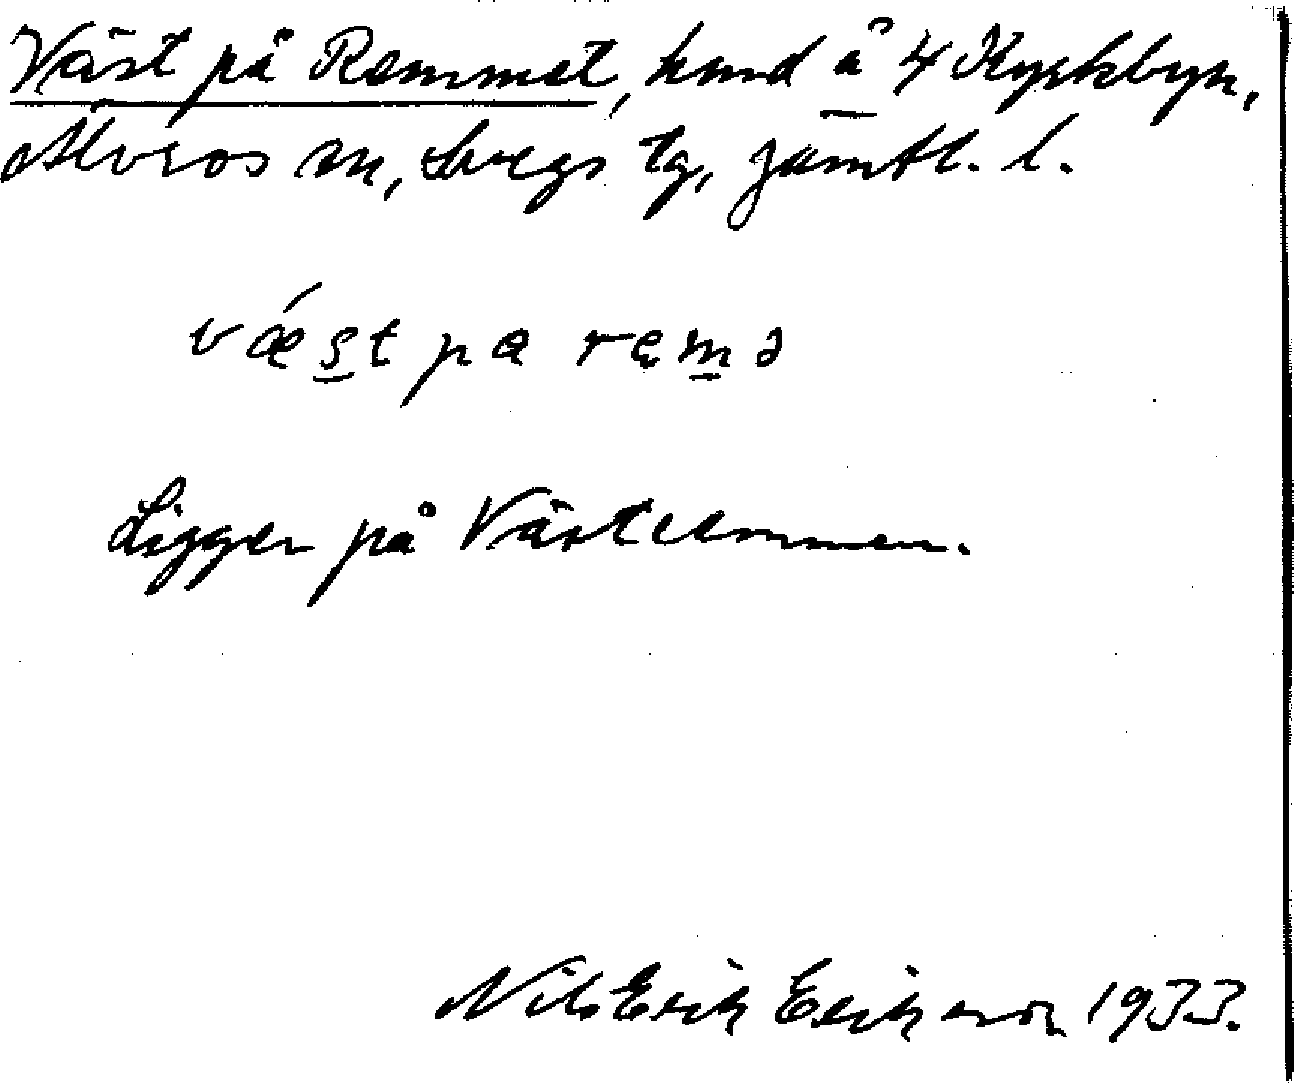 Väst på Remmet, hmd å 4 Kyrkbyn,
Älvros sn, Svegs tg, Jämtl. l.
vǽst pa remə
Ligger på Västremmen.
Nils Erik Eriksson 1933.